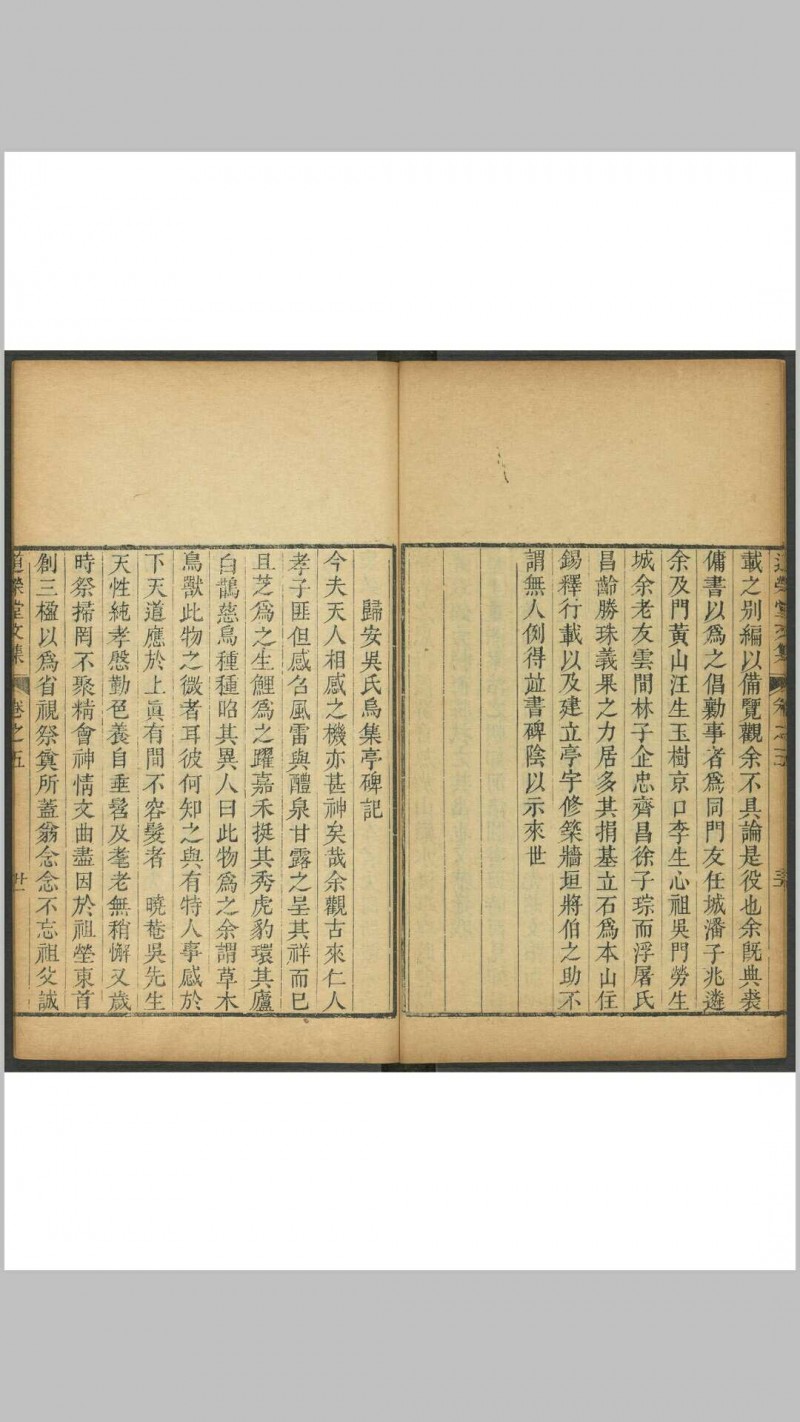 載之别編以備覽觀余不具論是役也余旣典裘
傭書以爲之倡勷事者爲同門友任城潘子兆遴
余及門黃山汪生玉樹京口李生心祖吳門勞生
城余老友雲間林子企忠齊昌徐子琮而浮屠氏
昌齡勝珠義果之力居多其捐基立石爲本山住
錫釋行載以及建立亭宇修築牆垣將伯之助不
謂無人例得竝書碑陰以示來世
歸安吳氏烏集亭碑記
今夫天人相感之機亦甚神矣哉余觀古來仁人
孝子匪但感召風雷與醴泉甘露之呈其祥而已
且芝爲之生鯉爲之躍嘉禾挺其秀虎豹環其廬
白鵲慈烏種種昭其異人曰此物爲之余謂草木
鳥獸此物之微者耳彼何知之與有特人事感於
下天道應於上眞有間不容髮者 曉菴吳先生
天性純孝慇勤色養自垂髫及耄老無稍懈又歲
時祭掃罔不聚精會神情文曲盡因於祖塋東首
創三楹以爲省視祭奠所蓋翁念念不忘祖父誠
道榮堂文集 卷之五 廿一